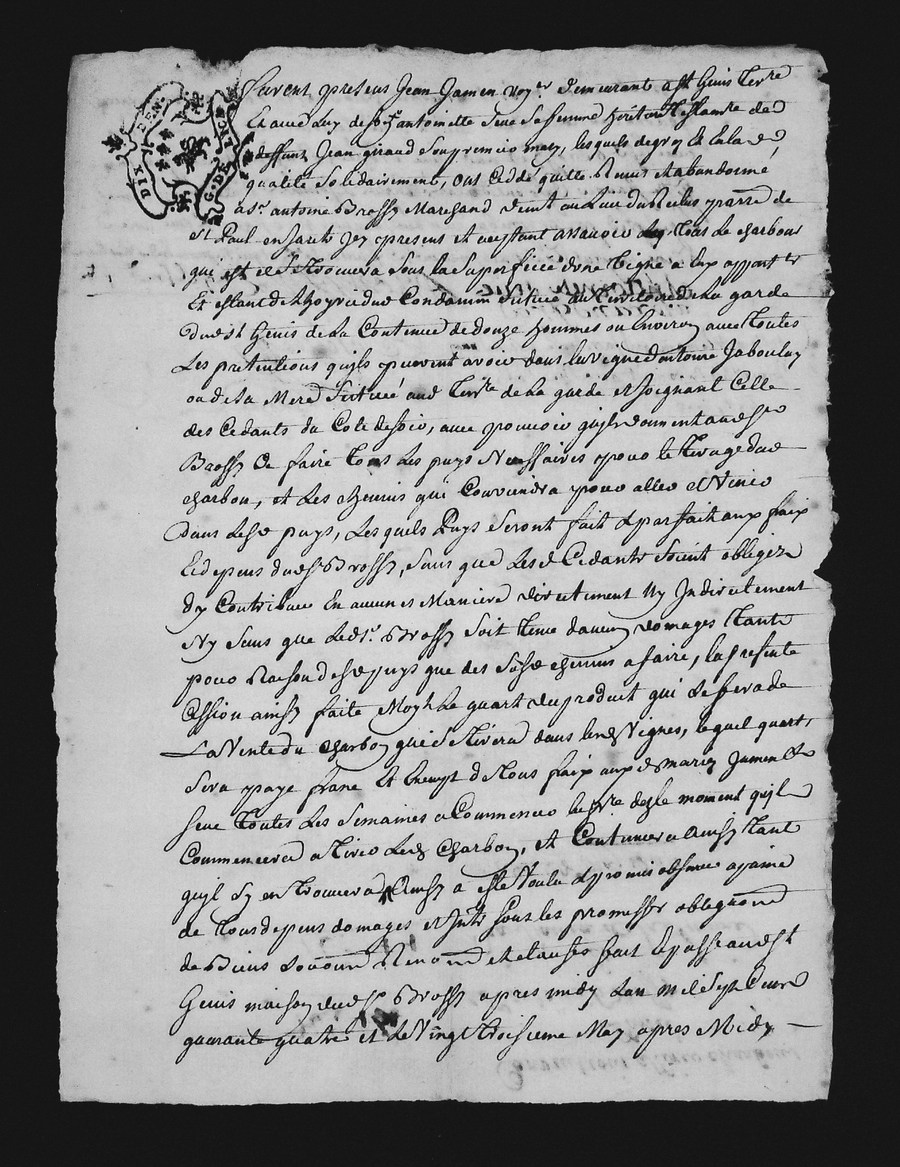 DIX DEN.
Furent presens Jean Jamen voyr demeurant a St Genis Terre
Et avec luy de st antoinette seve sa femme héritiere de
deffunt Jean giraud son premier mary, lesquels de gré Et En la d
qualité Solidairement, ont cedde quitté Remis Et abandonné
a sr antoine Brossy Marchand du lieu du parre de
St Paul en Jarets Jcy present et aceptant assavoir Tous Le charbon
qui est et Se trouvera sous la Superficie d'une Vigne a Eux appart te
Et estant de hoyrie du Condamin Scituée au Territoire de La garde
dud St Genis de La Contenue de douze hommes ou Environ avec Toutes
Les pretentions quils peuvent avoir dans la vigne d'antoine Jaboulay
ou de sa Mere Scituée aud Terre de La garde et Joignant Celle
des Cedants du Coté de soir, avec pouvoir quils donnent aud sr
Brossy de faire Tous Les puys Necessaires pour le Tirage dud
charbon, et Les chemins qui Conviendra pour aller et Venir
dans Lesd puys, Lesquels Puys seront fait & parfait aux fraix
Et depens dud sr Brossy, Sans que Lesd Cedants Soient obligéz
d'y Contribuer En aucunes Maniere directement Ny Jndirectement
Ny sans que Led sr Brossy soit Tenu d'aucun domages Tants
pour Raison desd puys que des susd chemins a faire, la presente
Cession ainsy faite Moyt Le quart du produit qui Se fera de
La Vente du charbon qui Se Tirera dans lesd Vignes, lequel quart
Sera payé franc Et Exempt de Tous fraix auxd mariez Jamen &
seve Toutes Les semaines a Commencer la pre des le moment quil
Commencera a Tirer Led charbon, et Continuera ainsy Tant
quil sy en trouvera, Ainsy a esté Voulu & promis observer a paine
de Tous depens domages et Jnts sous les promesses obligaond
de Biens Renond et clauses fait Et passé aud St
Genis maison dud sr Brossy apres midy Lan mil Sept Cent
quarante quatre et Le Vingt Troisieme May apres Midy —